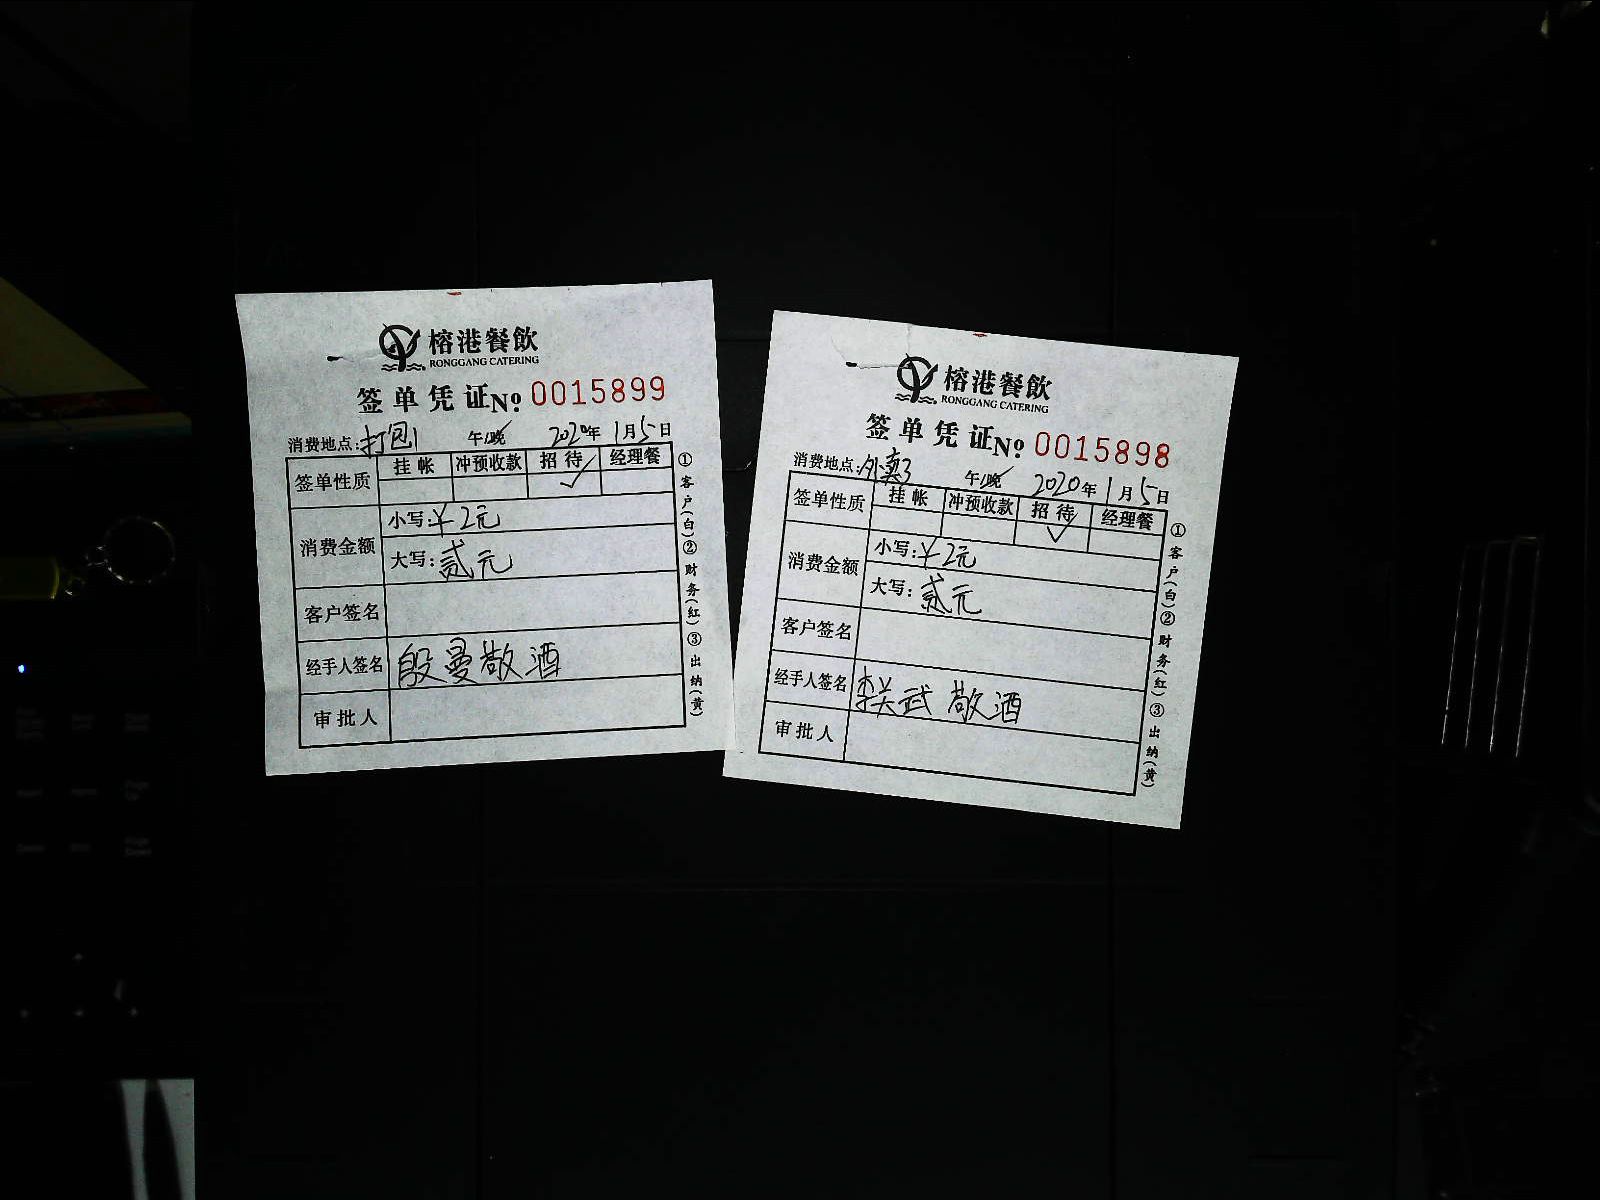 榕港餐飲
RONGGANG CATERING
签单凭证№ 0015899
消费地点:打包1 午/晚 2020年1月5日
签单性质 挂帐 冲预收款 招待 经理餐
✓
消费金额 小写:¥2元
大写:贰元
客户签名
经手人签名 殷曼敬酒
审批人
①客户(白)②财务(红)③出纳(黄)
榕港餐飲
RONGGANG CATERING
签单凭证№ 0015898
消费地点:外卖3 午/晚 2020年1月5日
签单性质 挂帐 冲预收款 招待 经理餐
✓
消费金额 小写:¥2元
大写:贰元
客户签名
经手人签名 武敬酒
审批人
①客户(白)②财务(红)③出纳(黄)